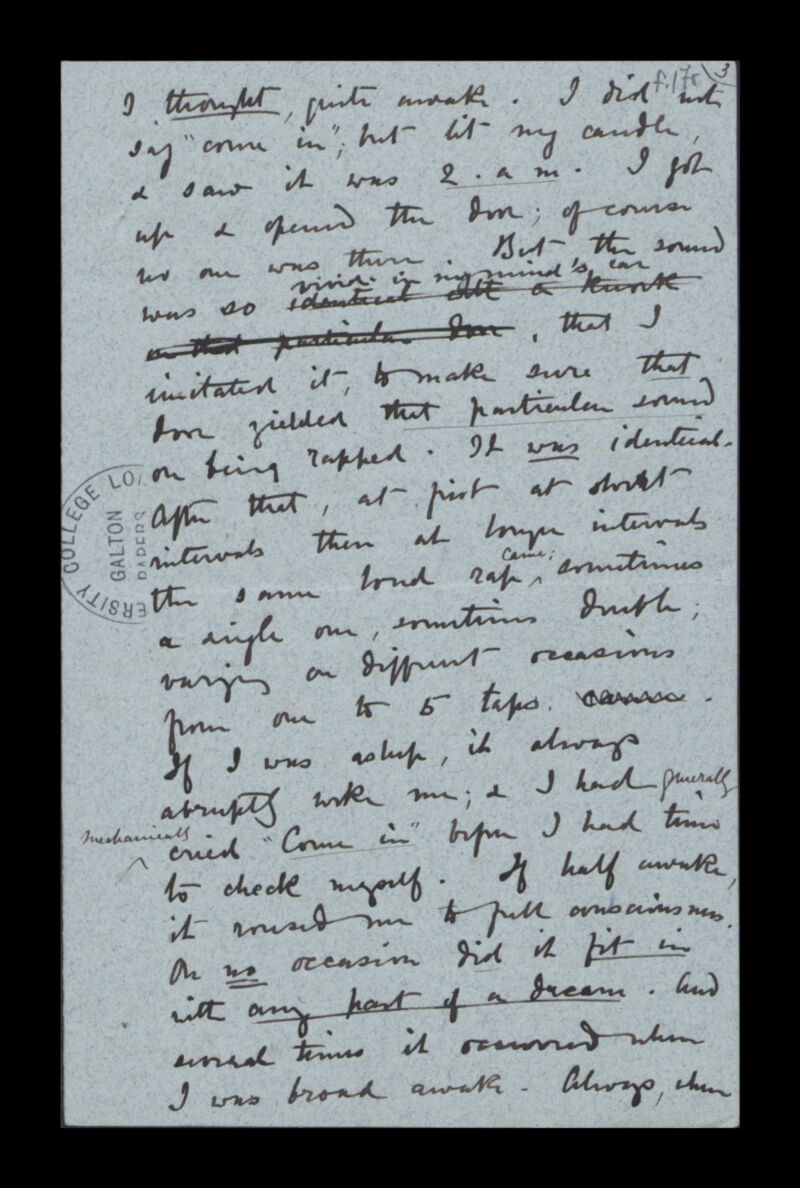 f.17r 3
I thought, quite awake. I did not
say "come in"; but lit my candle,
& saw it was 2. a. m. I got
up & opened the door; of course
no one was there But the sound
vivid in my mind's ear
was so identical with a knock
on that particular door, that I
imitated it, to make sure that
door yielded that particular sound
on being rapped. It was identical.
After that, at first at short
intervals then at longer intervals
came;
the same loud rap, sometimes
a single one, sometimes double;
varying on different occasions
from one to 5 taps.
If I was asleep, it always
abruptly woke me; & I had generally
mechanically
cried "Come in" before I had time
to check myself. If half awake,
it roused me to full consciousness.
On no occasion did it fit in
with any part of a dream. And
several times it occurred when
I was broad awake. Always, when
ERSITY COLLEGE LO
GALTON
PAPERS